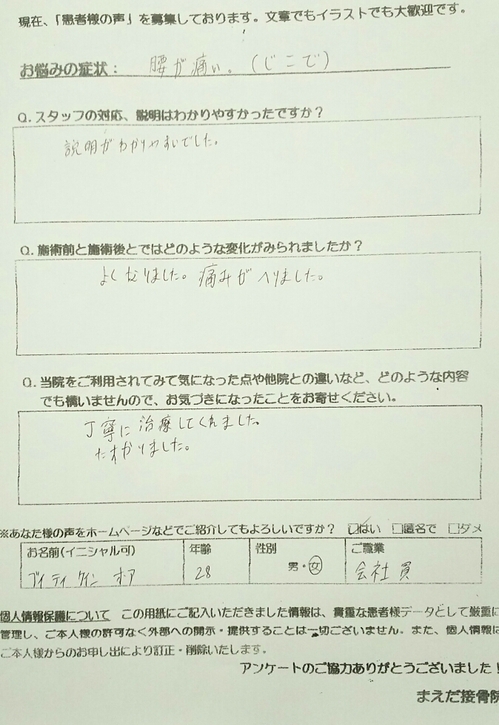 現在、「患者様の声」を募集しております。文章でもイラストでも大歓迎です。
お悩みの症状： 腰が痛い。(じこで)
Q. スタッフの対応、説明はわかりやすかったですか？
説明がわかりやすいでした。
Q. 施術前と施術後とではどのような変化がみられましたか？
よくなりました。痛みがへりました。
Q. 当院をご利用されてみて気になった点や他院との違いなど、どのような内容
でも構いませんので、お気づきになったことをお寄せください。
丁寧に治療してくれました。
たすかりました。
※あなた様の声をホームページなどでご紹介してもよろしいですか？ ☑はい □匿名で □ダメ
お名前(イニシャル可) 年齢 性別 ご職業
28 男・女 会社員
個人情報保護について この用紙にご記入いただきました情報は、貴重な患者様データとして厳重に
管理し、ご本人様の許可なく外部への開示・提供することは一切ございません。また、個人情報は
ご本人様からのお申し出により訂正・削除いたします。
アンケートのご協力ありがとうございました！
まえだ接骨院